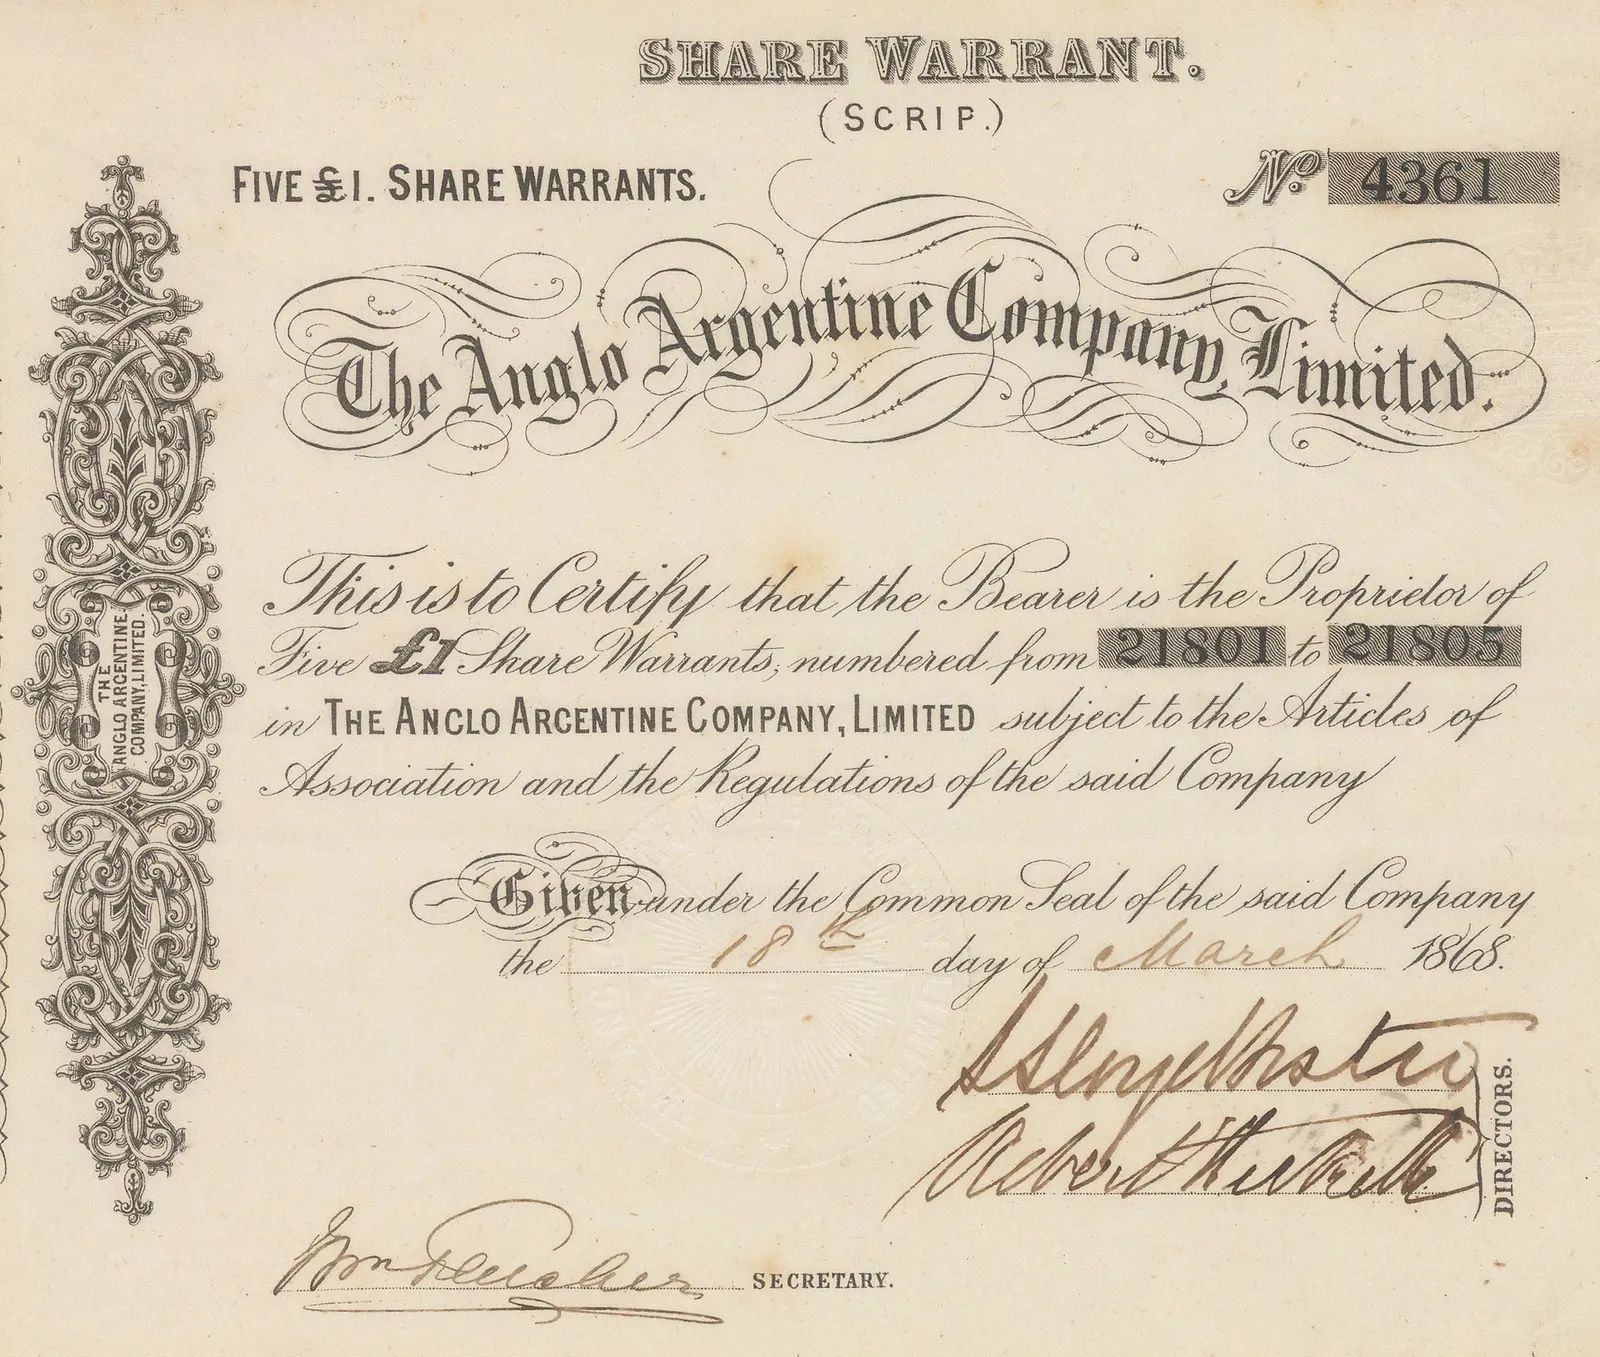 SHARE WARRANT.
(SCRIP.)
FIVE £1. SHARE WARRANTS.
No. 4361
The Anglo Argentine Company, Limited.
THE
ANGLO ARGENTINE
COMPANY, LIMITED.
This is to Certify that the Bearer is the Proprietor of
Five £1 Share Warrants, numbered from 21801 to 21805
in THE ANGLO ARGENTINE COMPANY, LIMITED subject to the Articles of
Association and the Regulations of the said Company
Given under the Common Seal of the said Company
the 18th day of March 1868.
Robert
DIRECTORS.
Wm SECRETARY.